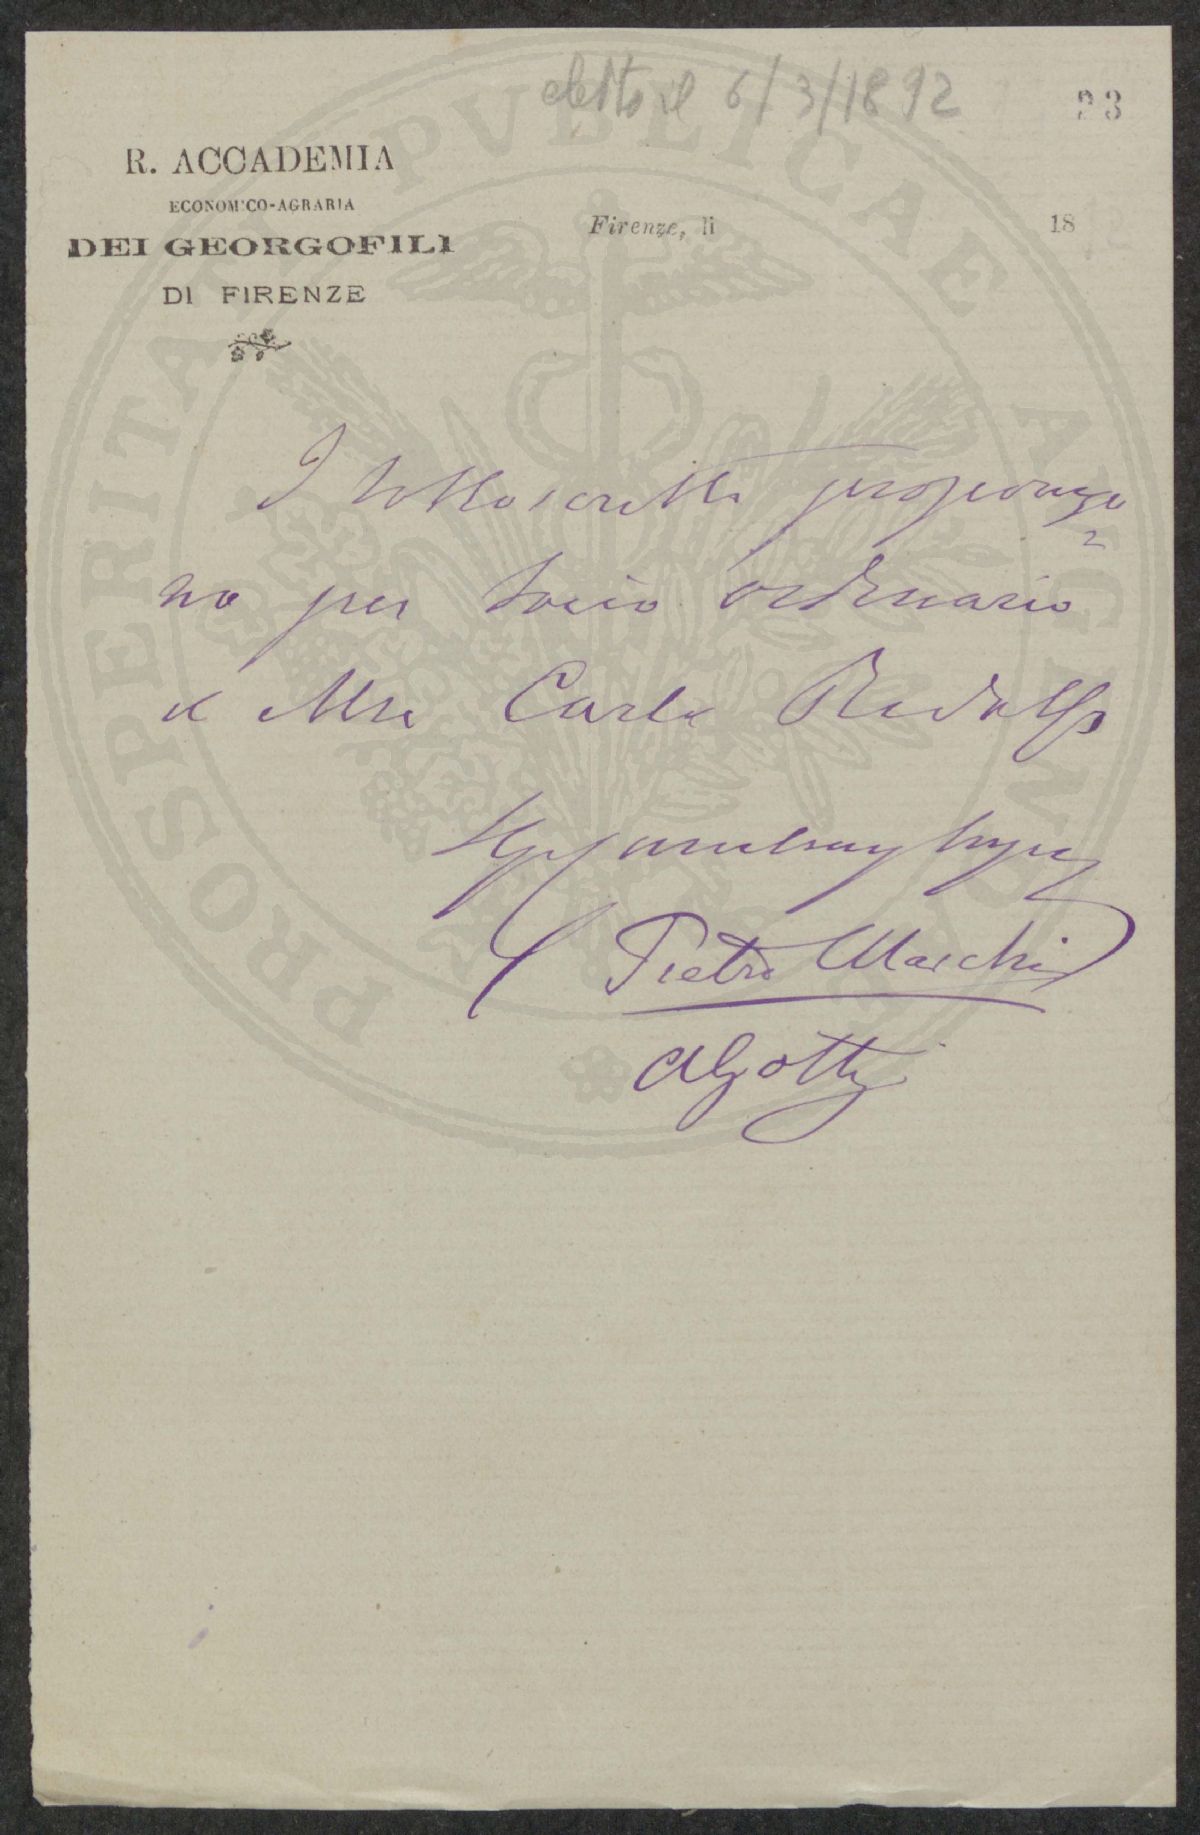 eletto il 6/3/1892
93
R. ACCADEMIA
ECONOMICO-AGRARIA
DEI GEORGOFILI
DI FIRENZE
Firenze, li 18
I sottoscritti propongo
no per socio ordinario
il Mse Carlo Ridolfi
Pietro Marchi
AGotti
PROSPERITATI PVBLICAE AVGENDAE